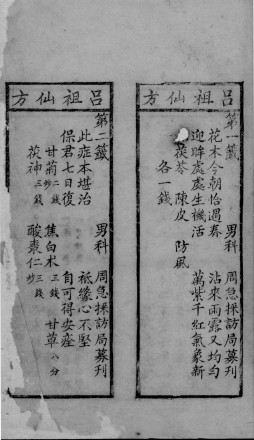 呂祖仙方
第一籤　男科　周急採訪局募刊
花木今朝恰過春　沾來雨露又均勻
迎眸處處生機活　萬紫千紅氣象新
茯苓　陳皮　防風
各一錢
呂祖仙方
第二籤　男科　周急採訪局募刊
此症本堪治　祗緣心不堅
保君七日後　自可得安痊
甘菊二錢炒　焦白朮三錢　甘草八分
茯神三錢　酸棗仁三錢炒